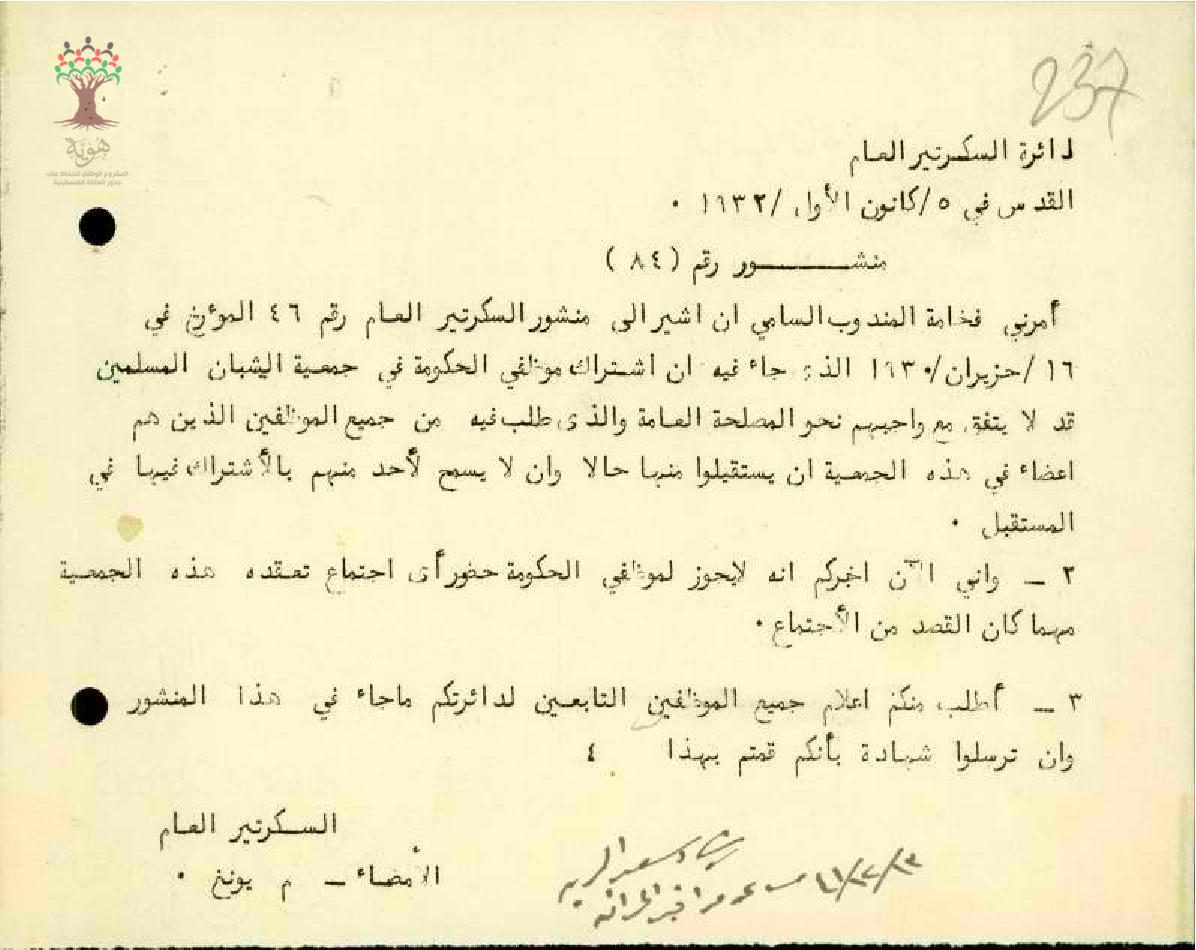 237
هوية
المشروع الوطني للحفاظ على
جذور العائلة الفلسطينية
دائرة السكرتير العام
القدس في ٥/كانون الأول/١٩٣٢ ٠
منشــــــور رقم (٨٤)
أمرني فخامة المندوب السامي ان اشير الى منشور السكرتير العام رقم ٤٦ المؤرخ في
١٦/حزيران/١٩٣٠ الذي جاء فيه ان اشتراك موظفي الحكومة في جمعية الشبان المسلمين
قد لا يتفق مع واجبهم نحو المصلحة العامة والذى طلب فيه من جميع الموظفين الذين هم
اعضاء في هذه الجمعية ان يستقيلوا منها حالا وان لا يسمح لأحد منهم بالأشتراك فيها في
المستقبل ٠
٢ ـ واني الآن اخبركم انه لايجوز لموظفي الحكومة حضور أى اجتماع تعقده هذه الجمعية
مهما كان القصد من الأجتماع ٠
٣ ـ أطلب منكم اعلام جميع الموظفين التابعين لدائرتكم ماجاء في هذا المنشور
وان ترسلوا شهادة بأنكم قمتم بهذا ٤
السكرتير العام
الأمضاء ـ م يونغ ٠